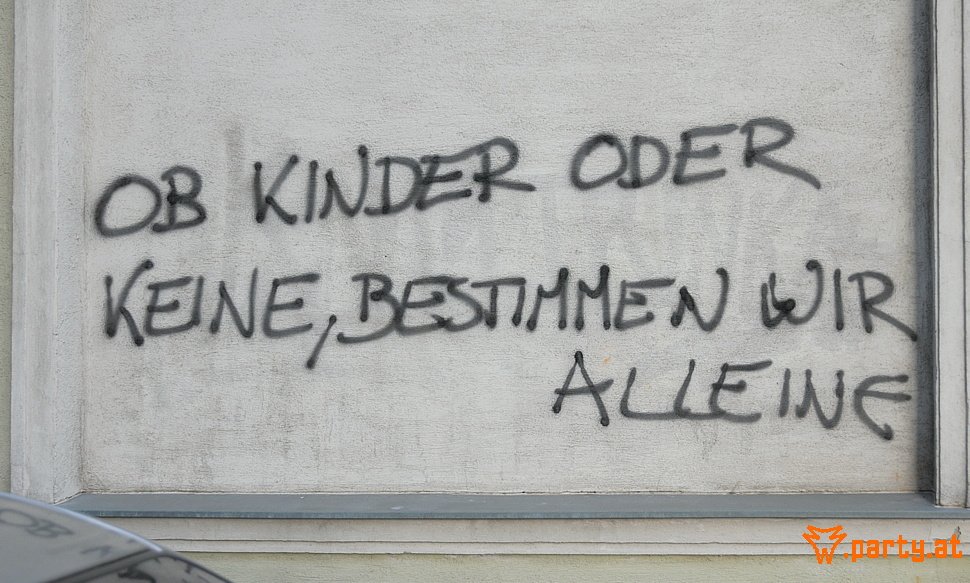 OB KINDER ODER
KEINE, BESTIMMEN WIR
ALLEINE
OB
W.party.at